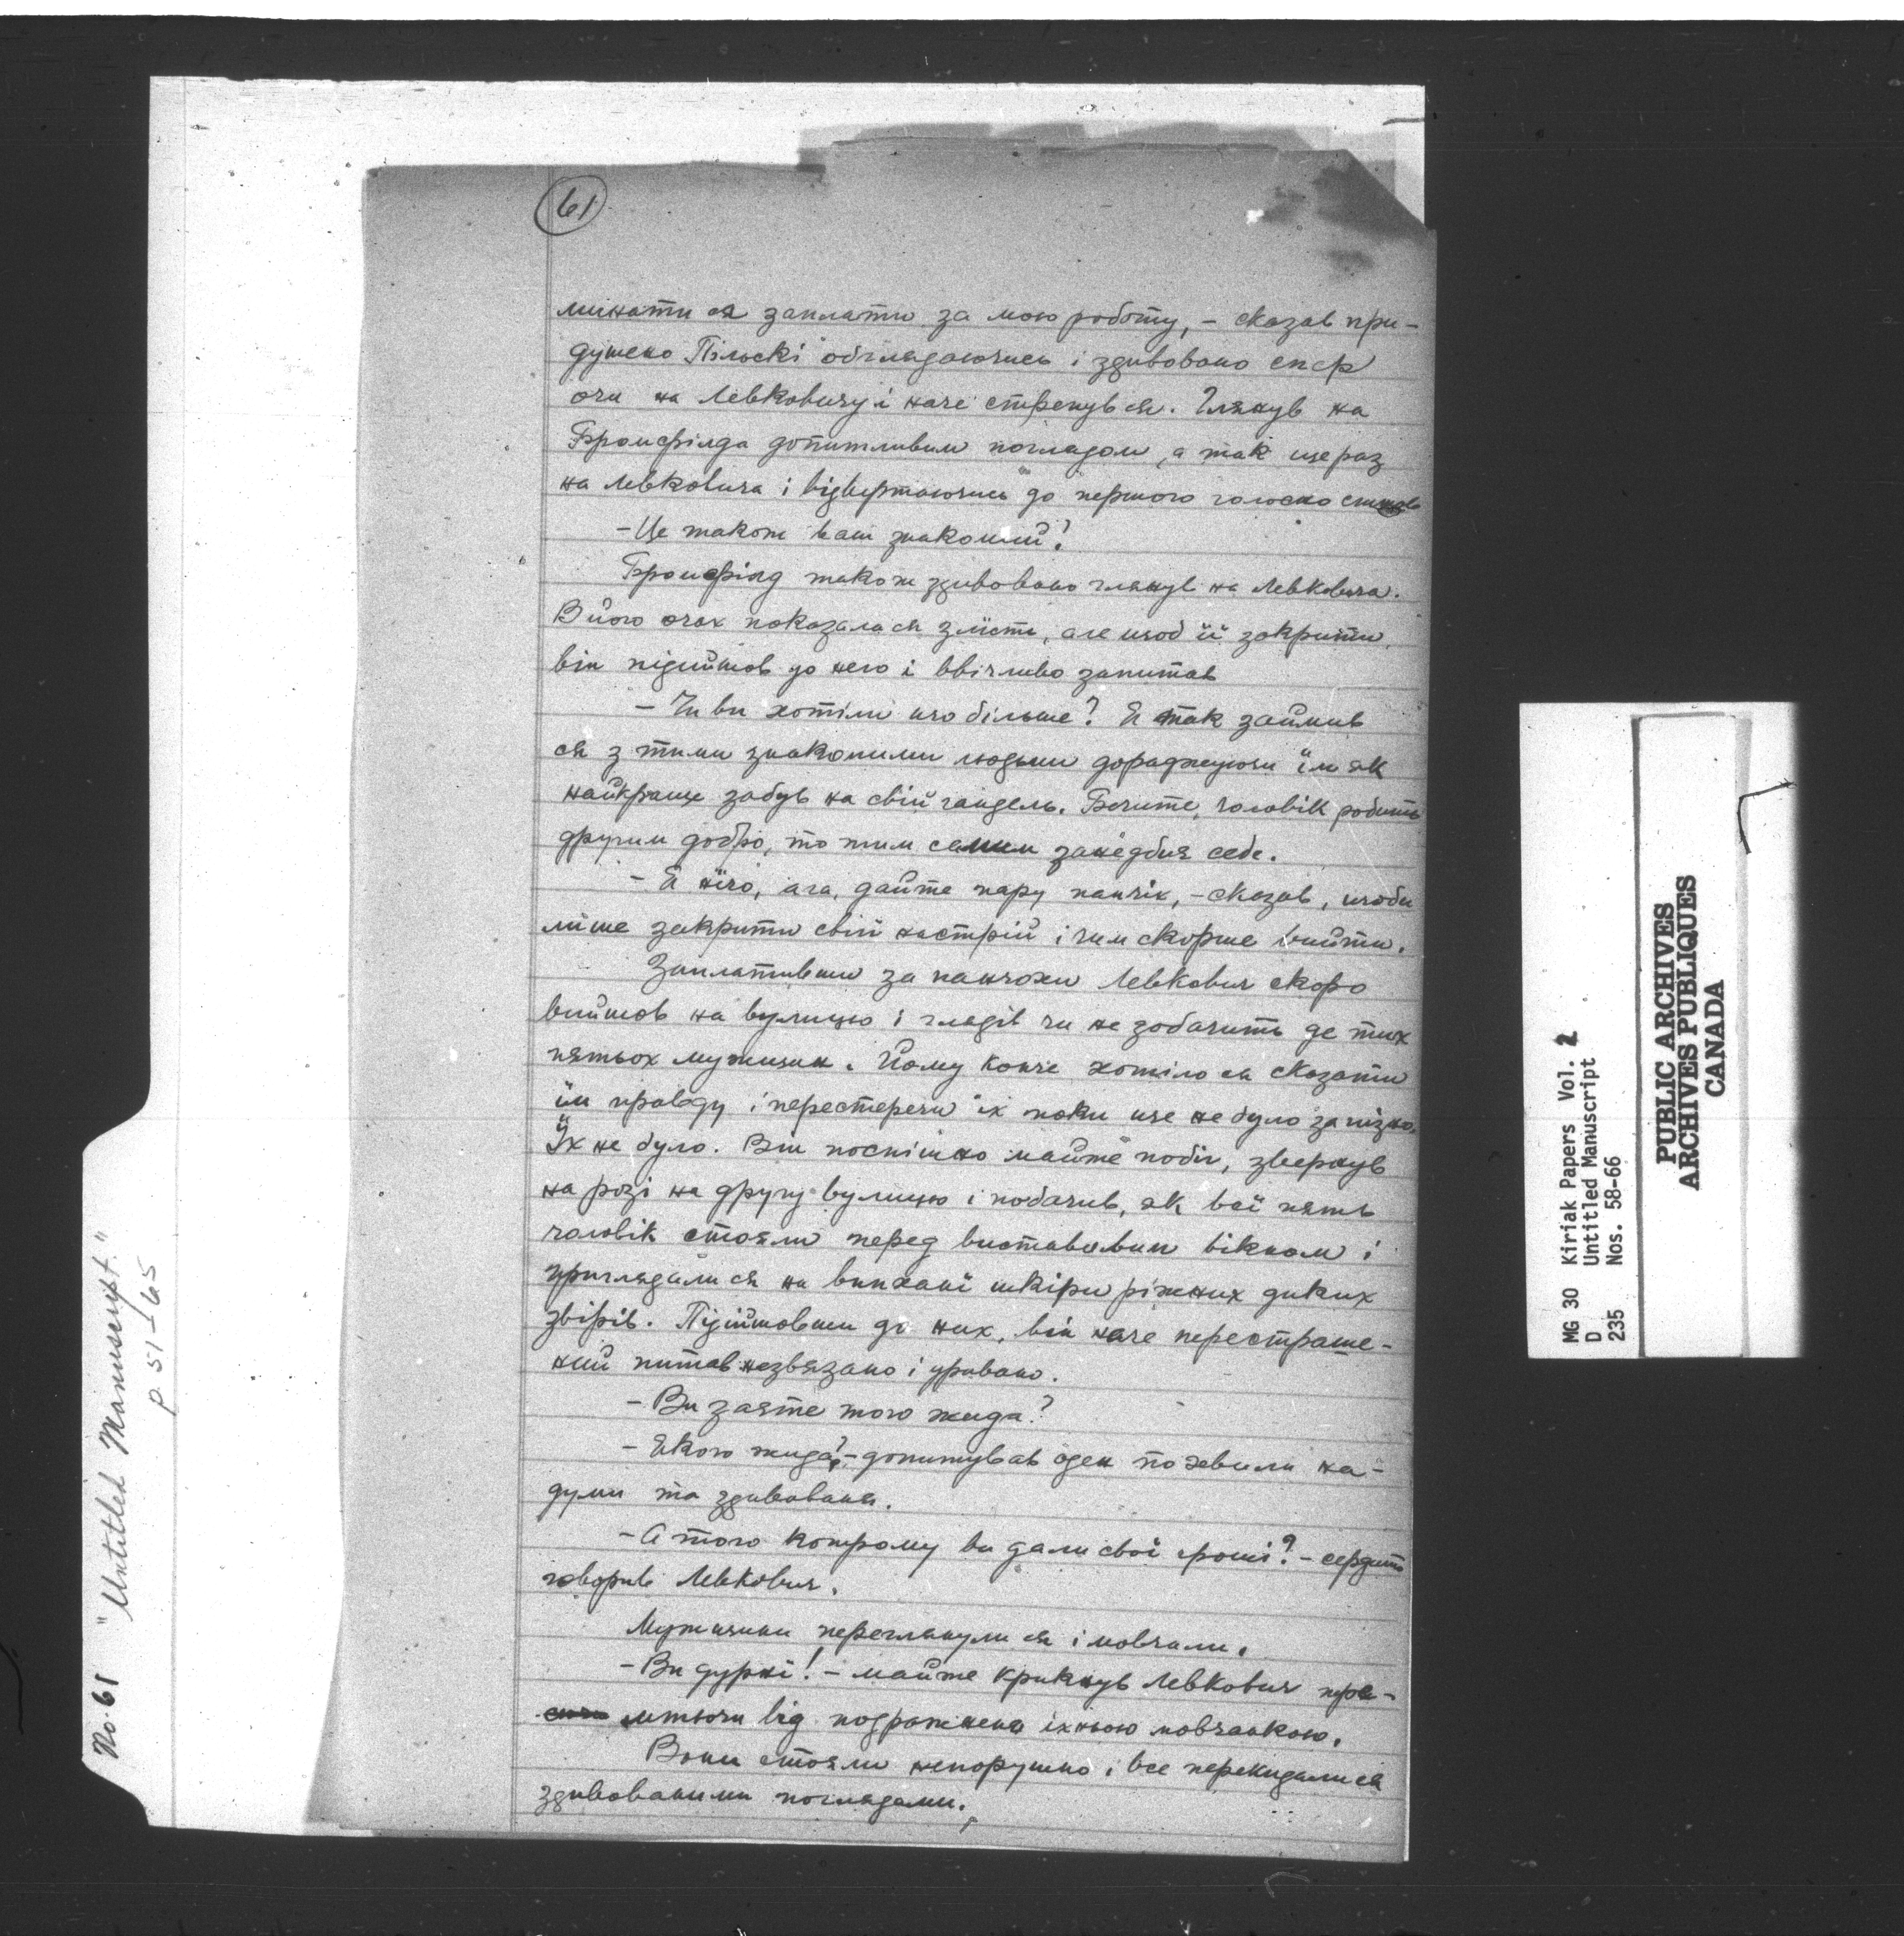 61
минати ся заплати за мою роботу, – сказав при-
душено Пільскі обглядаючись і здивовано спер
очи на Левковичу і наче стрепнув ся. Глянув на
Бромфілда допитливим поглядом, а так ще раз
на Левковича і відвертаючись до першого голосно спитав
– Це також ваш знакомий?
Бромфілд також здивовано глянув на Левковича.
В його очах показала ся злість, але щоб її закрити,
він підийшов до него і ввічливо запитав
– Чи ви хотіли що більше? Я так займив
ся з тими знакомими людьми дораджуючи їм як
найкраще забув на свій гандель. Бачите, чоловік робить
другим добро, то тим самим занедбия себе.
– Я нічо, ага, дайте пару панчіх, – сказав, щоби
лише закрити свій настрій і чим скорше вийти.
Заплативши за панчохи Левкович скоро
вийшов на вулицю і глядів чи не зобачить де тих
пятьох мужищин. Йому конче хотіло ся сказати
їм правду і перестеречи їх поки ще не було запізно.
Їх не було. Він поспішно майже побіг, звернув
на розі на другу вулицю і побачив, як всі пять
чоловік стояли перед виставовим вікном і
приглядали ся на випхані шкіри ріжних диких
звірів. Підійшовши до них, він наче перестраше-
ний питав незвязано і уривано.
– Ви знаєте того жида?
– Якого жида? – допитував оден по хвили на-
думи та здивованя.
– А того котрому ви дали свої гроші? – сердито
говорив Левкович.
Мужчини переглянули ся і мовчали.
– Ви дурні! – майже крикнув Левкович
від подражненя їхньою мовчанкою.
Вони стояли непорушно і все перекидали ся
здивованими поглядами.
No. 61 "Untitled Manuscript."
p 51–65
MG 30 Kiriak Papers Vol. 2
D Untitled Manuscript
235 Nos. 58-66
PUBLIC ARCHIVES
ARCHIVES PUBLIQUES
CANADA